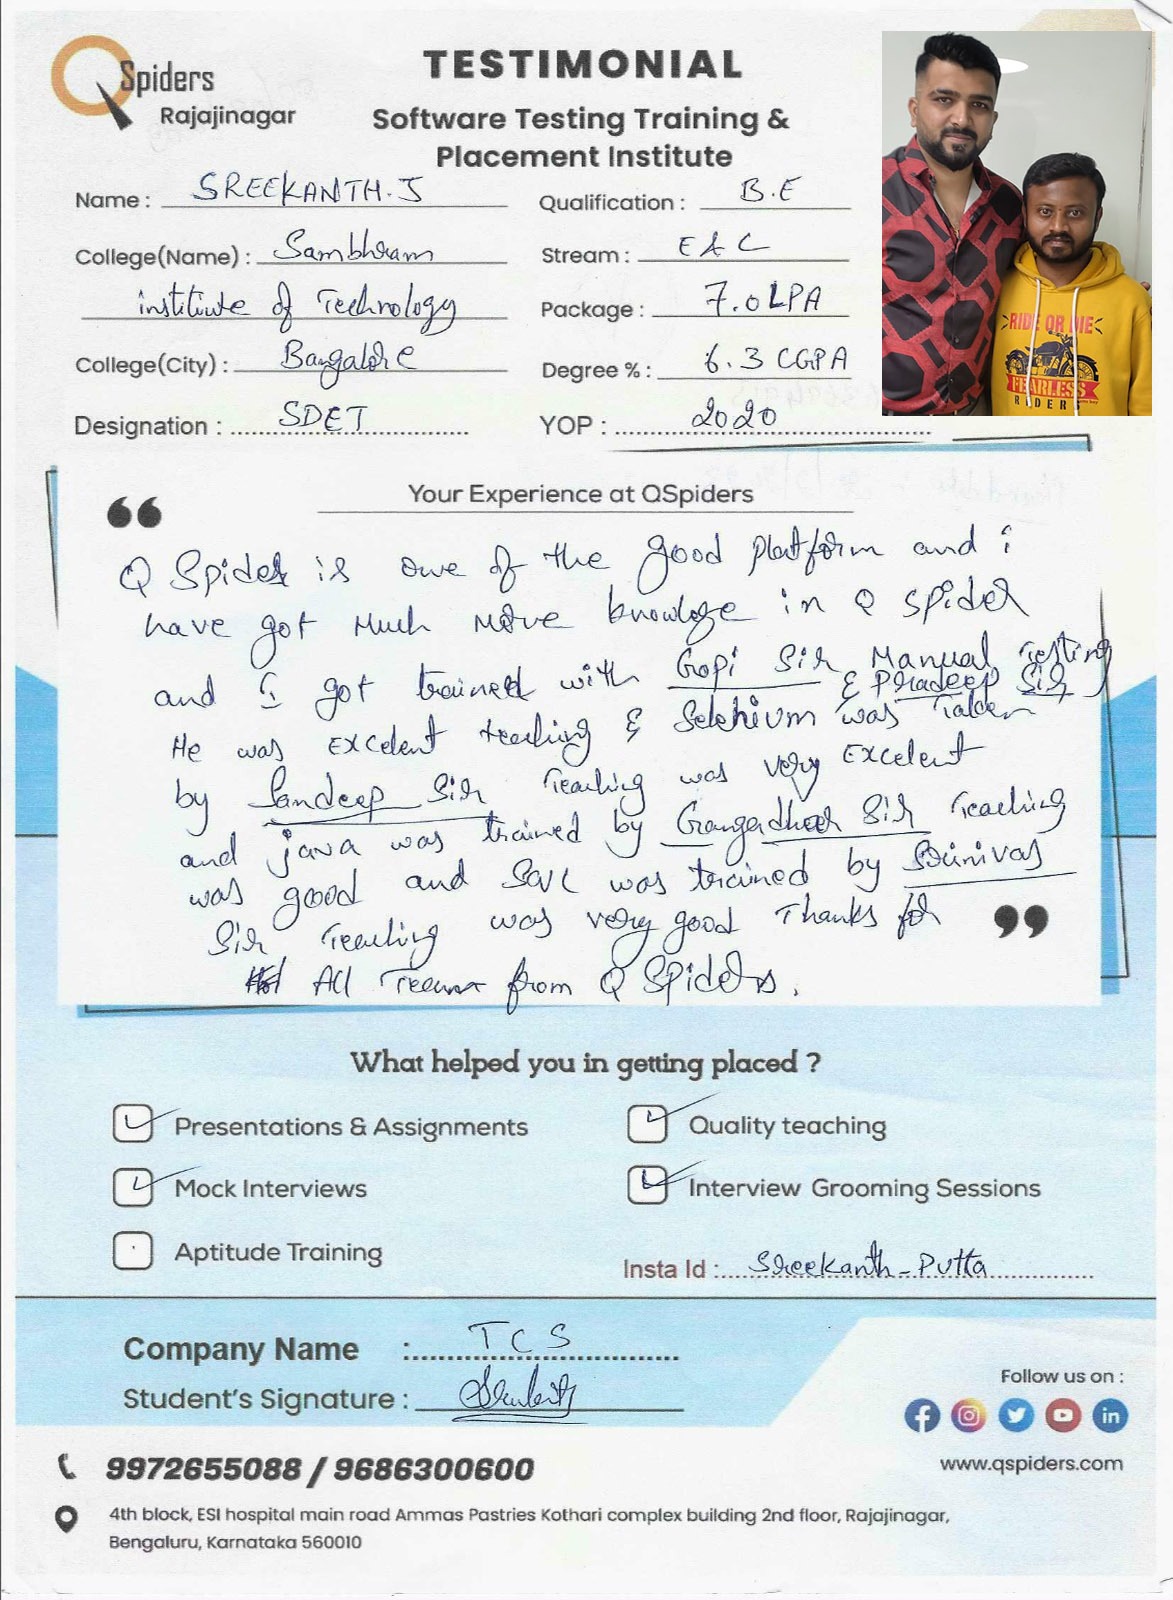 QSpiders
Rajajinagar
TESTIMONIAL
Software Testing Training &
Placement Institute
Name : SREEKANTH.J
Qualification : B.E
College(Name) : Sambhram
institute of Technology
Stream : E&C
Package : 7.0LPA
College(City) : Bangalore
Degree % : 6.3 CGPA
Designation : SDET
YOP : 2020
RIDE OR DIE
FEARLESS
RIDERS
Your Experience at QSpiders
Q Spider is one of the good platform and i
have got Much More knowloge in Q spider
and I got trained with Gopi Sir Manual Testing
& Pradeep Sir
He was Excelent teaching & Selenium was Taken
by Sandeep Sir Teaching was very Excelent
and java was trained by Gangadhar Sir Teaching
was good and was trained by Srinivas
Sir Teaching was very good Thanks for
All from Q Spiders.
What helped you in getting placed ?
Presentations & Assignments
Quality teaching
Mock Interviews
Interview Grooming Sessions
Aptitude Training
Insta Id : Sreekanth_Putta
Company Name : TCS
Student's Signature :
Follow us on :
www.qspiders.com
9972655088 / 9686300600
4th block, ESI hospital main road Ammas Pastries Kothari complex building 2nd floor, Rajajinagar,
Bengaluru, Karnataka 560010